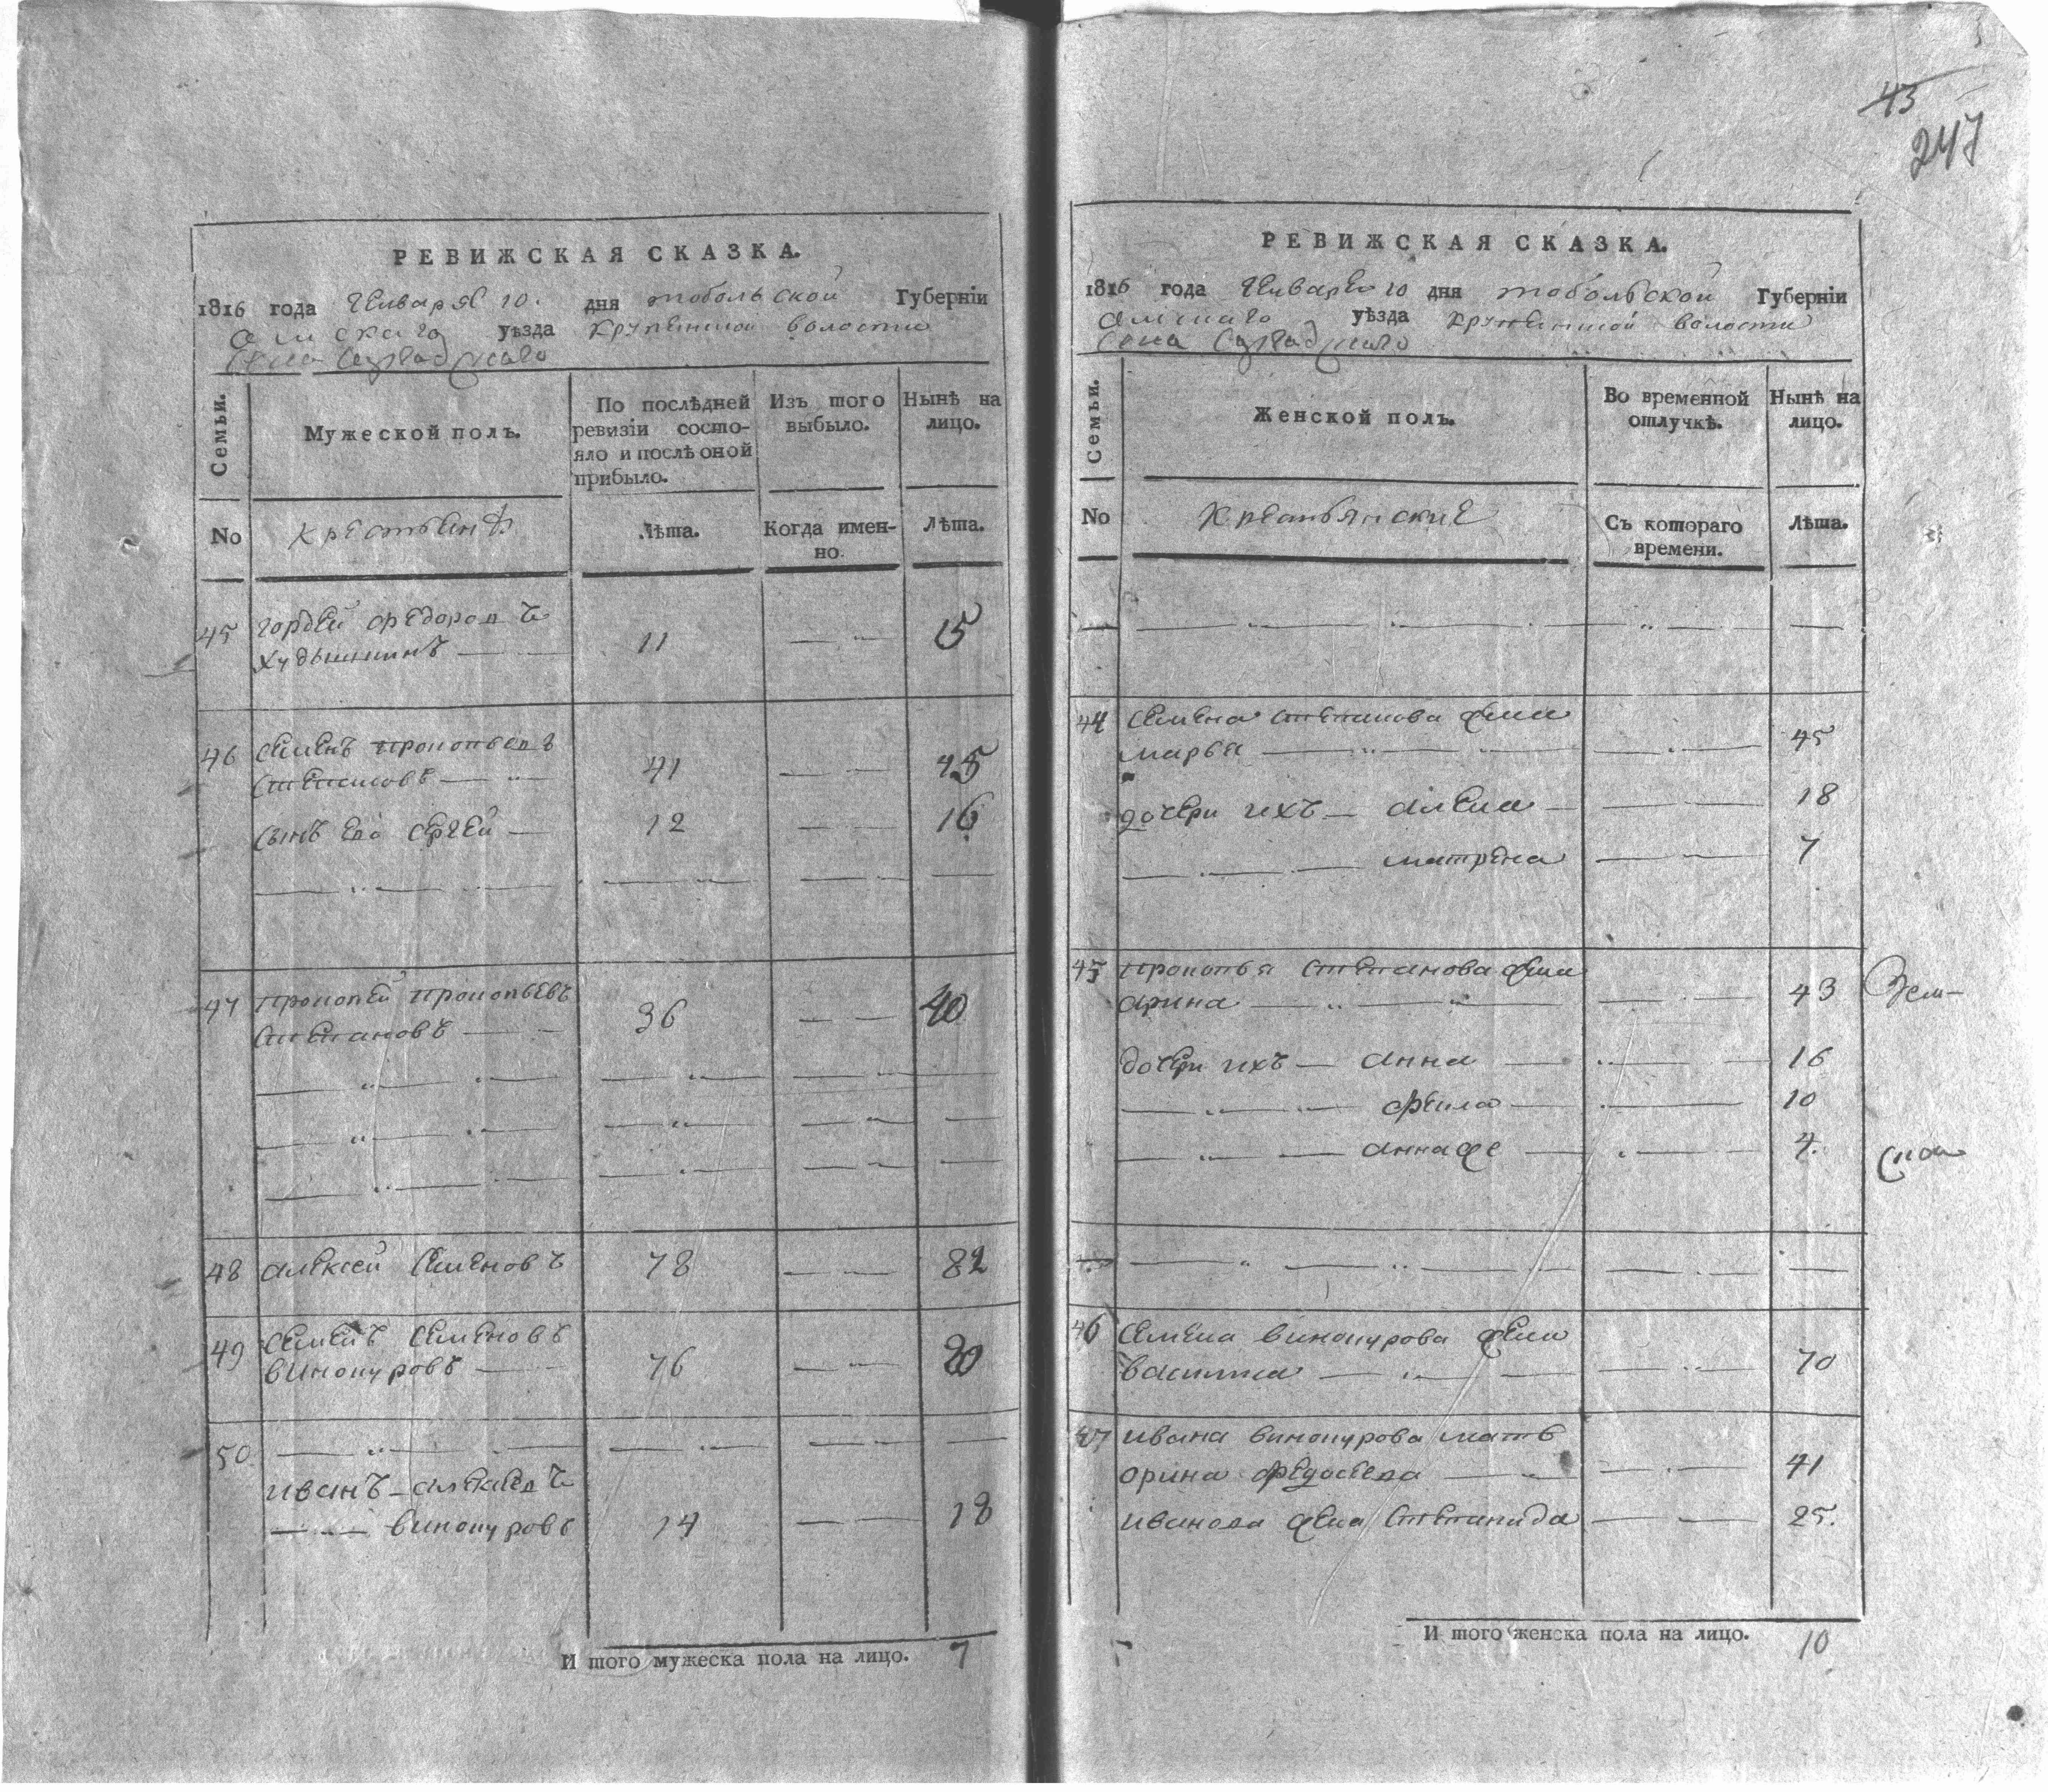 43
247
РЕВИЖСКАЯ СКАЗКА.
1816 года Генваря 10. дня тобольской Губерніи
омскаго уѣзда крупенской волости
села
Семьи. Мужеской полъ. По послѣдней ревизіи состояло и послѣ оной прибыло. Изъ того выбыло. Нынѣ на лицо.
No крестьянѣ Лѣта. Когда именно. Лѣта.
45 гордей федоровъ
11 15
46 семенъ прокопьевъ
степановъ 41 45
сынъ его сергей 12 16
47 прокопей прокопьевъ
степановъ 36 40
48 алексей семеновъ 78 82
49 семенъ семеновъ
винокуровъ 76 80
50
иванъ алексеевъ
винокуровъ 14 18
И того мужеска пола на лицо. 7
РЕВИЖСКАЯ СКАЗКА.
1816 года Генваря 10 дня тобольской Губерніи
омскаго уѣзда крупенской волости
села
Семьи. Женской полъ. Во временной отлучкѣ. Нынѣ на лицо.
No крестьянские Съ котораго времени. Лѣта.
44 семена степанова жена
марья 45
дочери ихъ алена 18
матрена 7
45 прокопья степанова жена
арина 43
дочери ихъ анна 16
10
4.
46 семена винокурова жена
70
47 ивана винокурова мать
орина федосеева 41
иванова жена степанида 25.
И того женска пола на лицо. 10